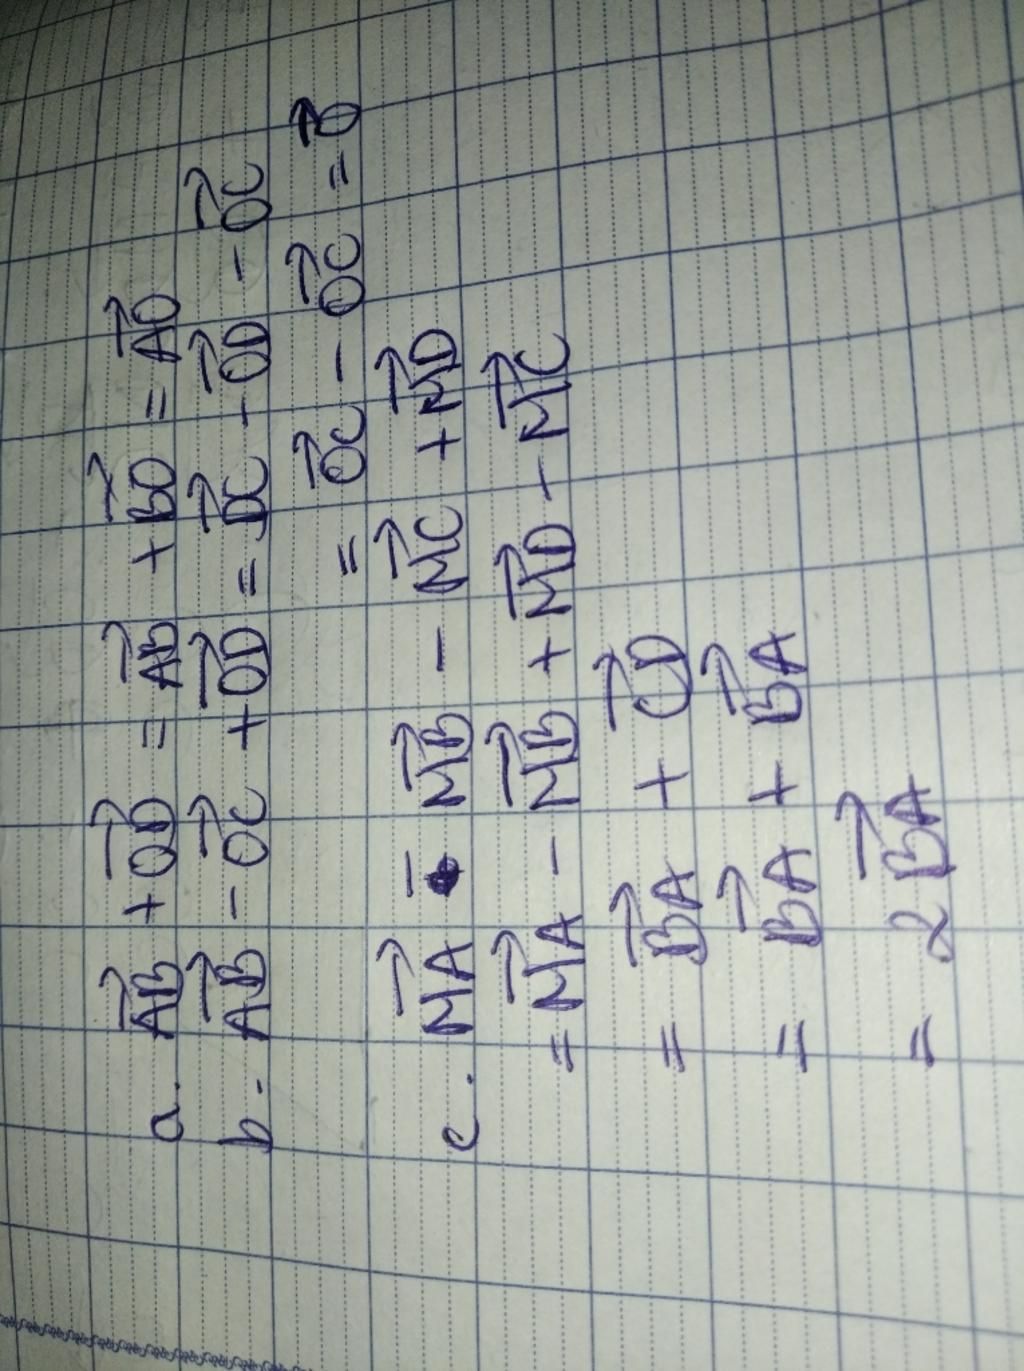 a. \overrightarrow{AB} + \overrightarrow{OD} = \overrightarrow{AB} + \overrightarrow{BO} = \overrightarrow{AO}
b. \overrightarrow{AB} - \overrightarrow{OC} + \overrightarrow{OD} = \overrightarrow{DC} - \overrightarrow{OD} - \overrightarrow{OC}
= \overrightarrow{OC} - \overrightarrow{OC} = \overrightarrow{0}
c. \overrightarrow{MA} - \overrightarrow{MB} - \overrightarrow{MC} + \overrightarrow{MD}
= \overrightarrow{MA} - \overrightarrow{MB} + \overrightarrow{MD} - \overrightarrow{MC}
= \overrightarrow{BA} + \overrightarrow{CD}
= \overrightarrow{BA} + \overrightarrow{BA}
= 2 \overrightarrow{BA}